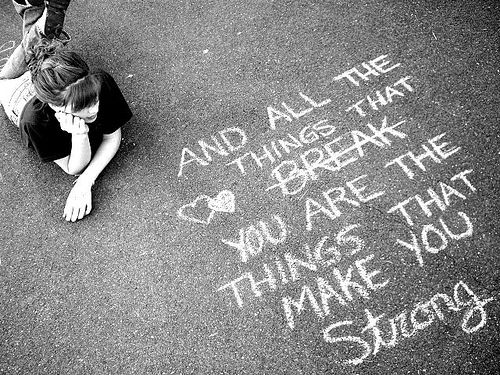 AND ALL THE
THINGS THAT
BREAK
YOU ARE THE
THINGS THAT
MAKE YOU
Strong